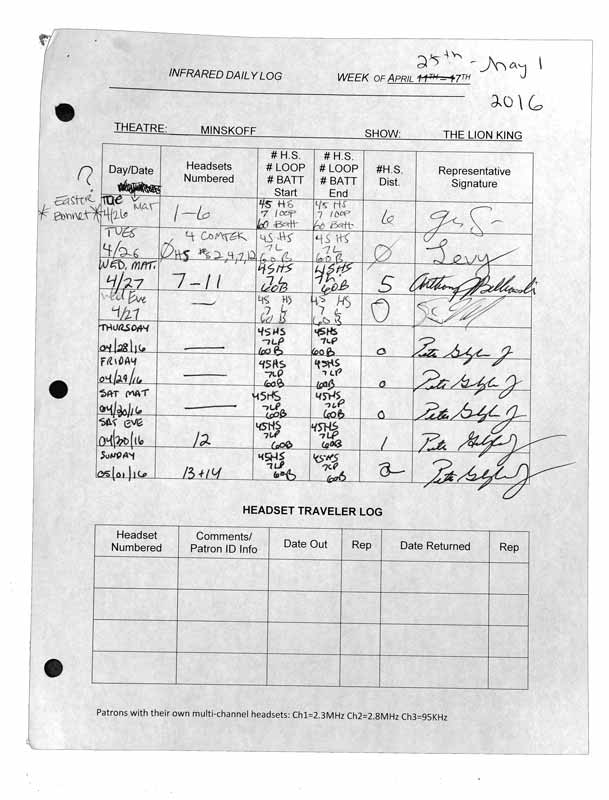 25th - May 1
INFRARED DAILY LOG WEEK OF APRIL 11TH – 17TH
2016
THEATRE: MINSKOFF SHOW: THE LION KING
Day/Date Headsets Numbered # H.S. # LOOP # BATT Start # H.S. # LOOP # BATT End #H.S. Dist. Representative Signature
?
Easter
* Bonnet *
TUE MAT
4/26 1-6 45 HS 7 loop 60 Batt 45 HS 7 loop 60 Batt 6
TUES
4/26 4 COMTEK
Ø HS #s 2,4,7,12 45 HS 7 L 60 B 45 HS 7 L 60 B Ø Levy
WED. MAT.
4/27 7-11 45HS 7L 60B 45HS 7L 60B 5 Anthony
Wed Eve
4/27 — 45 HS 7 L 60 B 45 HS 7 L 60 B 0
THURSDAY
04/28/16 — 45HS 7LP 60B 45HS 7LP 60B 0 Pete
FRIDAY
04/29/16 — 45HS 7LP 60B 45HS 7LP 60B 0 Pete
SAT MAT
04/30/16 — 45HS 7LP 60B 45HS 7LP 60B 0 Pete
SAT EVE
04/30/16 12 45HS 7LP 60B 45HS 7LP 60B 1 Pete
SUNDAY
05/01/16 13+14 45HS 7LP 60B 45HS 7LP 60B 2 Pete
HEADSET TRAVELER LOG
Headset Numbered Comments/ Patron ID Info Date Out Rep Date Returned Rep
Patrons with their own multi-channel headsets: Ch1=2.3MHz Ch2=2.8MHz Ch3=95KHz